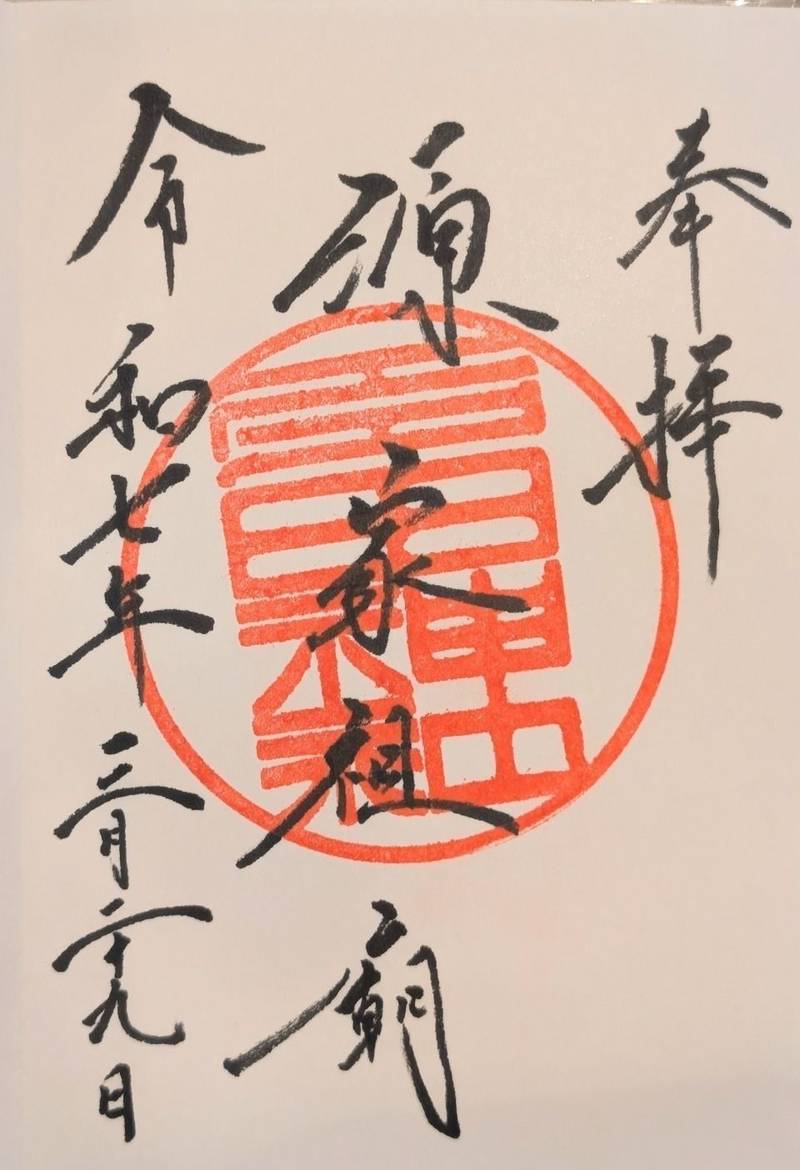 奉拝
源家祖廟
令和七年三月二十九日